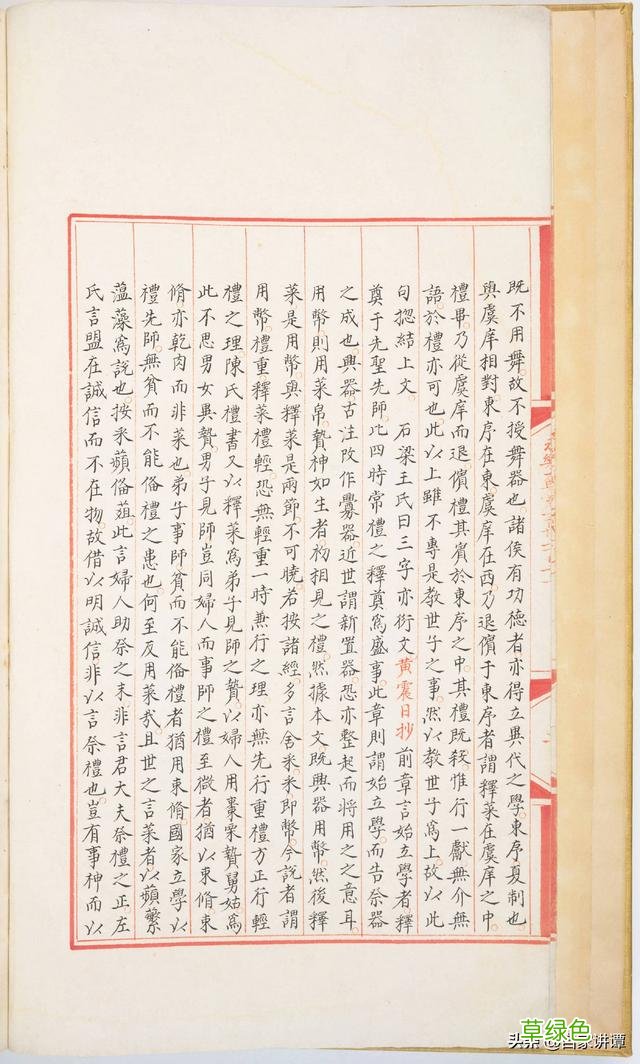 既不用舞故不授舞器也諸侯有功德者亦得立異代之學東序夏制也
與虞庠相對東序在東虞庠在西乃退儐于東序者謂釋菜在虞庠之中
禮畢乃從虞庠而退儐禮其賓於東序之中其禮既殺惟行一獻無介無
語於禮亦可也此以上雖不專是教世子之事然以教世子爲上故以此
句揔結上文 石梁王氏曰三字亦衍文黄震日抄前章言始立學者釋
奠于先聖先師比四時常禮之釋奠爲盛事此章則謂始立學而告祭器
之成也興器古注改作釁器近世謂新置器恐亦整起而將用之之意耳
用幣則用菜帛贄神如生者初相見之禮然據本文既興器用幣然後釋
菜是用幣與釋菜是兩節不可曉若按諸經多言舍釆釆即幣今說者謂
用幣禮重釋菜禮輕恐無輕重一時兼行之理亦無先行重禮方正行輕
禮之理陳氏禮書又以釋菜爲弟子見師之贄以婦人用棗栗贄舅姑爲
此不思男女異贄男子見師豈同婦人而事師之禮至微者猶以束脩束
脩亦乾肉而非菜也弟子事師貧而不能俻禮者猶用束脩國家立學以
禮先師無貧而不能俻禮之患也何至反用菜㢤且世之言菜者以蘋蘩
薀藻爲說也按釆蘋俻葅此言婦人助祭之末非言君大夫祭禮之正左
氏言盟在誠信而不在物故借以明誠信非以言祭禮也豈有事神而以
草绿色
头条 @百家讲谭